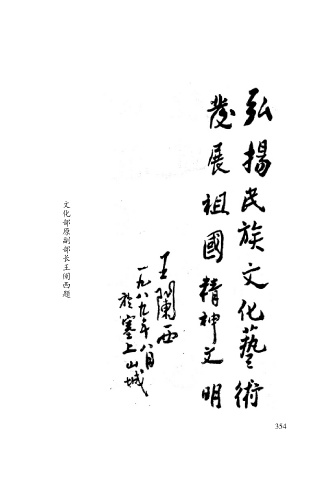 弘揚民族文化藝術
發展祖國精神文明
王闌西
一九八九年八月
於塞上山城
文化部原副部长王阑西题
354